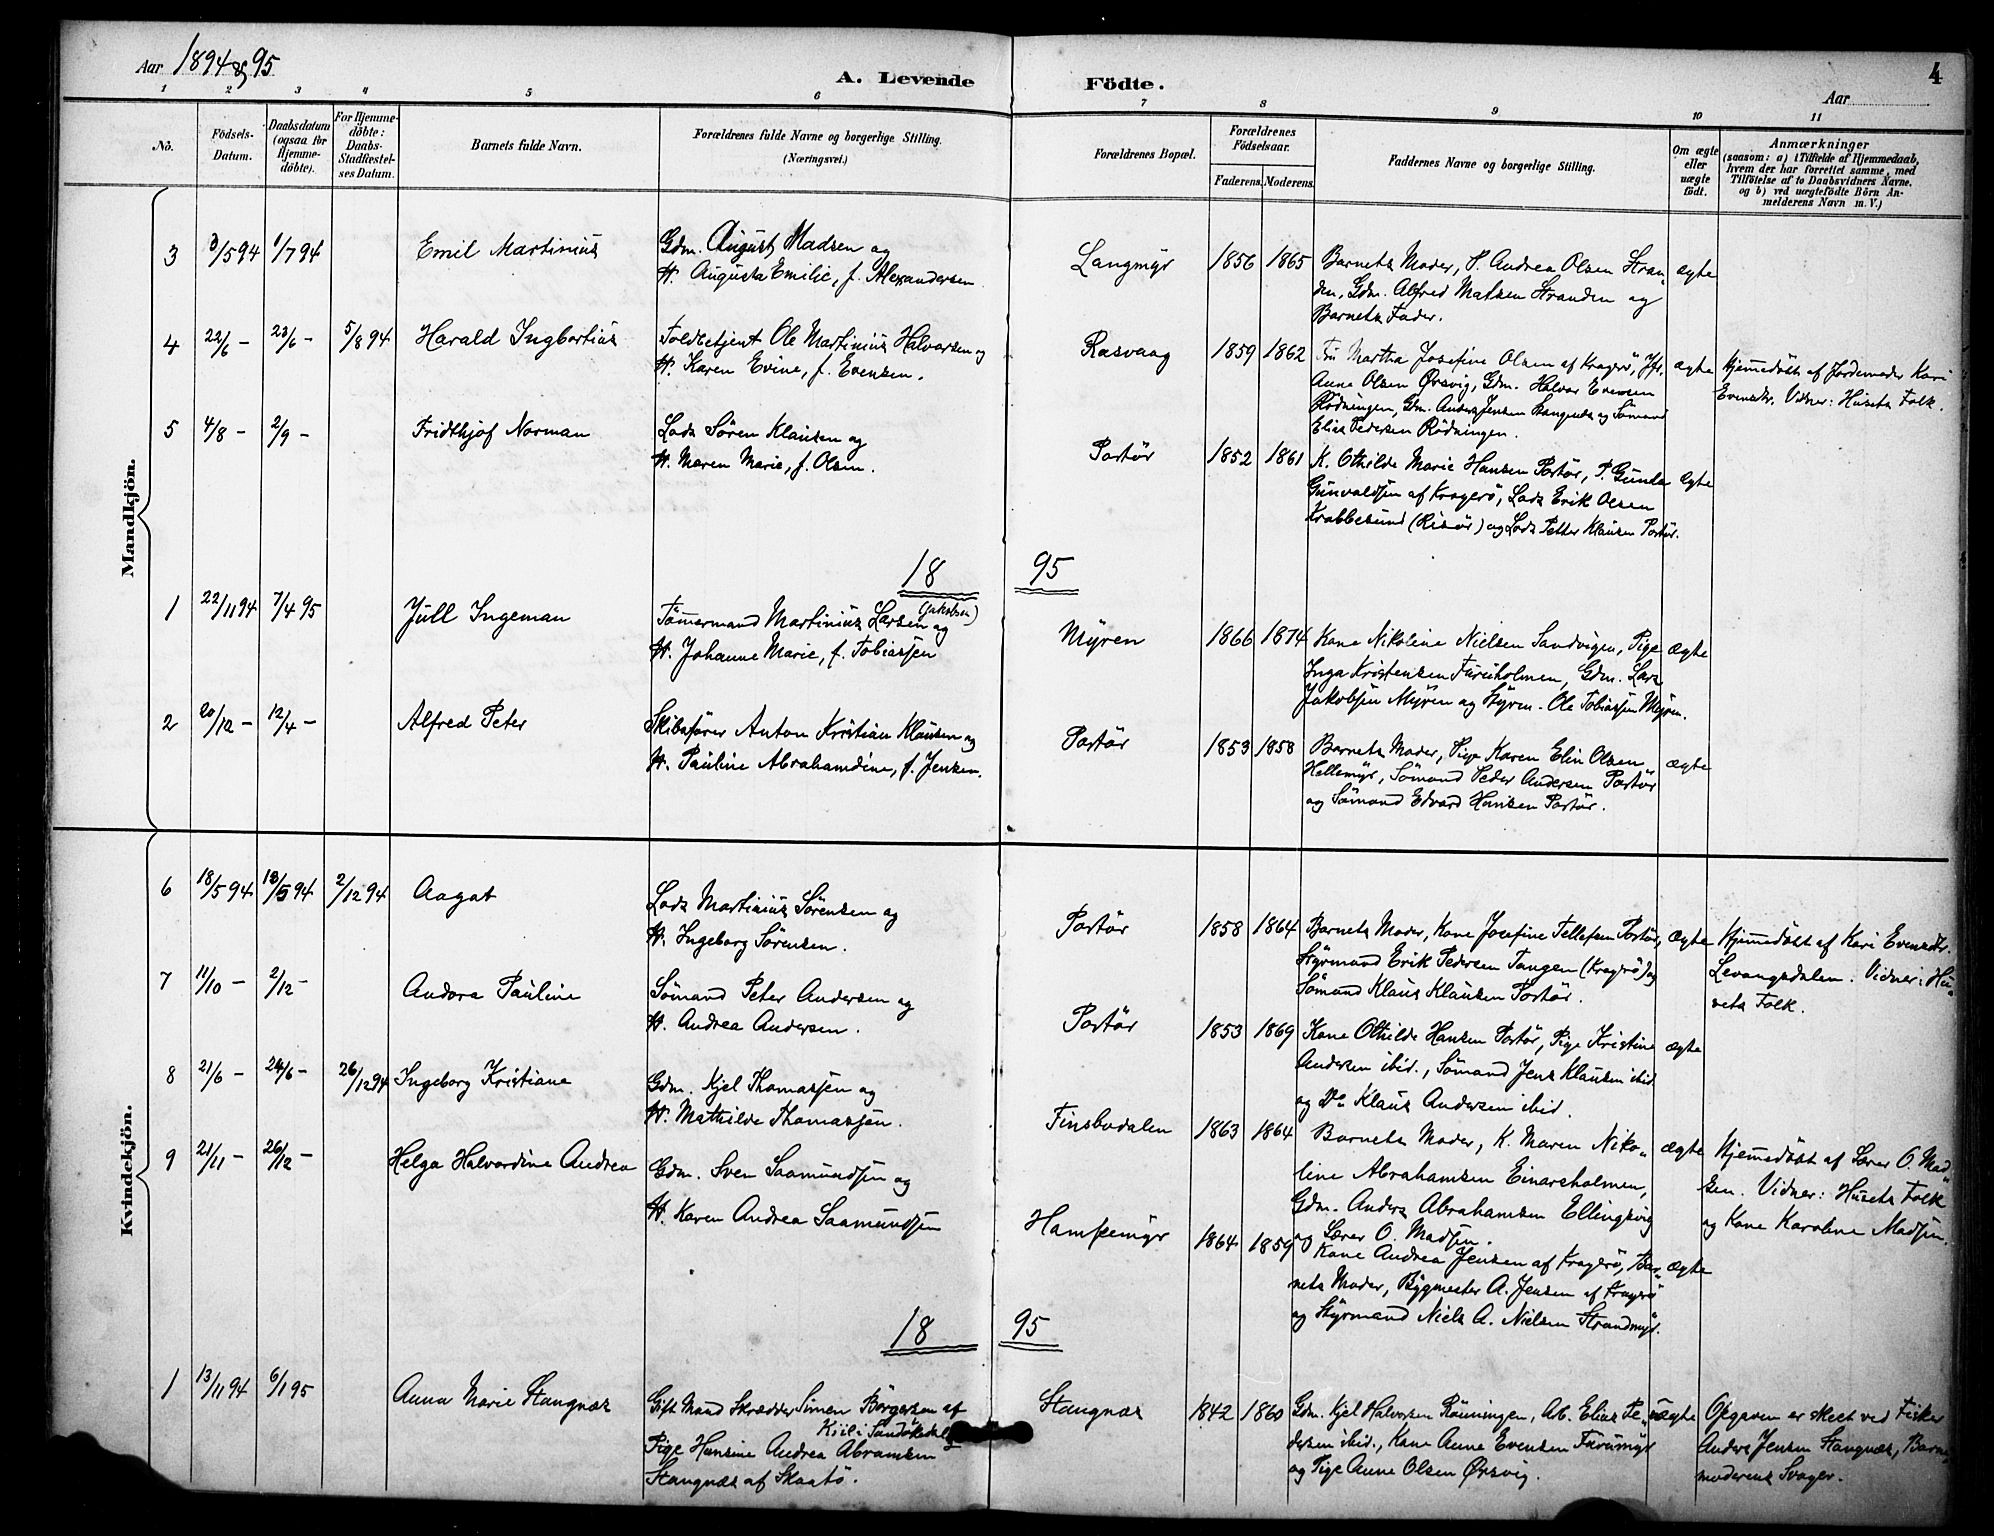 Aar 1894 & 95
A. Levende Födte.
4
Aar
1 2 3 4 5 6 7 8 9 10 11
No.
Födsels-Datum.
Daabsdatum (ogsaa for Hjemmedöbte).
For Hjemmedöbte: Daabs-Stadfæstelses Datum.
Barnets fulde Navn.
Forældrenes fulde Navne og borgerlige Stilling.
(Næringsvei.)
Forældrenes Bopæl.
Forældrenes Födselsaar.
Faderens. Moderens.
Faddernes Navne og borgerlige Stilling.
Om ægte eller uægte födt.
Anmærkninger
(saasom: a) i Tilfælde af Hjemmedaab,
hvem der har forrettet samme, med
Tilföielse af to Daabsvidners Navne.
og b) ved uægtefödte Börn An-
melderens Navn m. V.)
Mandkjön.
3 3/5 94 1/7 94 Emil Martinius
Gdm. August Madsen og
H. Augusta Emilie, f. Alexandersen
Langmyr 1856 1865
Barnets Moder, P. Andrea Olsen Stran-
den, Gdm. Alfred Matsen Stranden og
Barnets Fader.
ægte
4 22/6 – 23/6 – 5/8 94 Harald Ingbortius
Toldbetjent Ole Martinius Halvorsen og
H. Karen Evine, f. Evensen.
Rasvaag 1859 1862
Fru Martha Josefine Olsen af Kragerö, Jfr.
Anne Olsen Ørsvig, Gdm. Halvor Evensen
Rödningen, Gdm. Anders Jensen Stangnes og Sömand
Elias Pedersen Rödningen.
ægte
Hjemmedöbt af Jordemoder Kari
Evensdtr. Vidner: Husets Folk.
5 4/8 – 2/9 – Fridthjof Norman
Lods Sören Klausen og
H. Maren Marie, f. Olsen.
Portör 1852 1861
K. Othilde Marie Hansen Portör, P. Gunda
Gunvaldsen af Kragerö, Lods Erik Olsen
Krabbesund (Risör) og Lods Petter Klausen Portör.
ægte
18 95
1 22/11 94 7/4 95 Jull Ingeman
(Jakobsen)
Tömermand Martinius Larsen og
H. Johanne Marie, f. Tobiassen
Myren 1866 1874
Kone Nikoline Nielsen Sandvigen, Pige
Inga Kristensen Furuholmen, Gdm. Lars
Jakobsen Myren og Styrm. Ole Tobiassen Myren.
ægte
2 20/12 – 12/4 – Alfred Peter
Skibsförer Anton Kristian Klausen og
H. Pauline Abrahamdine, f. Jensen.
Portör 1853 1858
Barnets Moder, Pige Karen Elin Olsen
Hellemyr, Sömand Peder Andersen Portör
og Sömand Edvard Hansen Portör.
ægte
Kvindekjön.
6 18/5 94 18/5 94 2/12 94 Aagot
Lods Martinius Sörensen og
H. Ingeborg Sörensen.
Portör 1858 1864
Barnets Moder, Kone Josefine Tellefsen Portör,
Styrmand Erik Pedersen Tangen (Kragerö) og
Sömand Klaus Klausen Portör.
ægte
Hjemmedöbt af Kari Evensdtr.
Levangsdalen. Vidner: Hu-
sets Folk.
7 11/10 – 2/12 – Andora Pauline
Sömand Peter Andersen og
H. Andrea Andersen.
Portör 1853 1869
Kone Othilde Hansen Portör, Pige Kristine
Andersen ibid., Sömand Jens Klausen ibid
og Do Klaus Andersen ibid.
ægte
8 21/6 – 24/6 – 26/12 94 Ingeborg Kristiane
Gdm. Kjel Thomassen og
H. Mathilde Thomassen.
Finsbudalen 1863 1864
Barnets Moder, K. Maren Niko-
line Abrahamsen Einarsholmen,
Gdm. Anders Abrahamsen Ellingsvig
og Lærer O. Madsen.
ægte
Hjemmedöbt af Lærer O. Mad-
sen. Vidner: Husets Folk
og Kone Karoline Madsen.
9 21/11 – 26/12 – Helga Halvordine Andrea
Gdm. Sven Saamundsen og
H. Karen Andrea Saamundsen
Hampemyr 1864 1859
Kone Andrea Jensen af Kragerö, Bar-
nets Moder, Bygmester A. Jensen af Kragerö
og Styrmand Niels A. Nielsen Strandmyr.
ægte
18 95
1 13/11 94 6/1 95 Anna Marie Stangnæs
Gift Mand Skrædder Simen Börgersen af
Kiil i Sandökedal &
Pige Hansine Andrea Abramsen
Stangnæs af Skaatö.
Stangnæs 1842 1860
Gdm. Kjel Halvorsen Rönningen, Arb. Elias Pe-
dersen ibid., Kone Anne Evensen Furumyr
og Pige Anne Olsen Ørsvig.
uægte
Opgaven er skeet ved Fisker
Anders Jensen Stangnæs, Barne-
moderens Svoger.